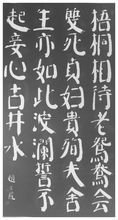 梧桐相待老鴛鴦会
雙死貞婦貴殉夫舍
生亦如此波瀾誓不
起妾心古井水